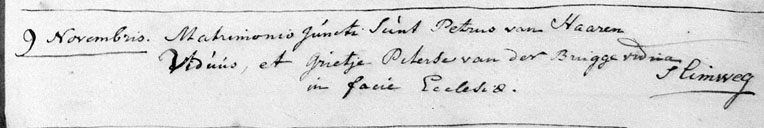 9 Novembris. Matrimonio juncti sunt Petrus van Haaren
Viduus, et Grietje Peterse van der Brugge vidua
Slimweg
in facie Ecclesiæ.